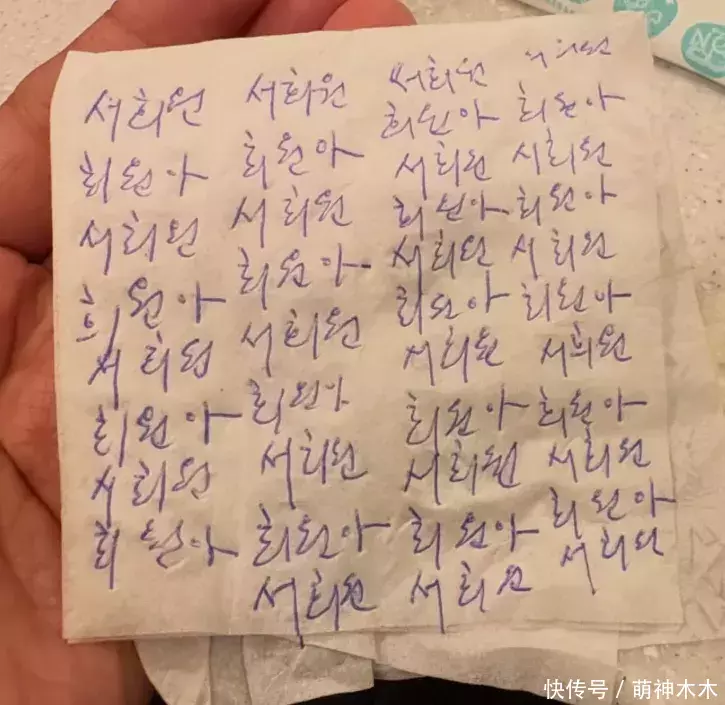 서희원
희원아
서희원
희원아
서희원
희원아
서희원
희원아
서희원
희원아
서희원
희원아
서희원
희원아
서희원
희원아
서희원
서희원
희원아
서희원
희원아
서희원
희원아
서희원
희원아
서희원
희원아
서희원
서희원
희원아
서희원
희원아
서희원
희원아
서희원
희원아
서희원
희원아
서희원
快传号 / 萌神木木